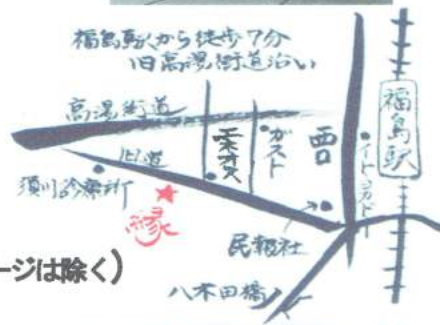 福島駅から徒歩7分
旧高湯街道沿い
高湯街道
旧道
須川診療所
縁
ガスト
西口
イトーヨカドー
福島駅
民報社
八木田橋
ージは除く)